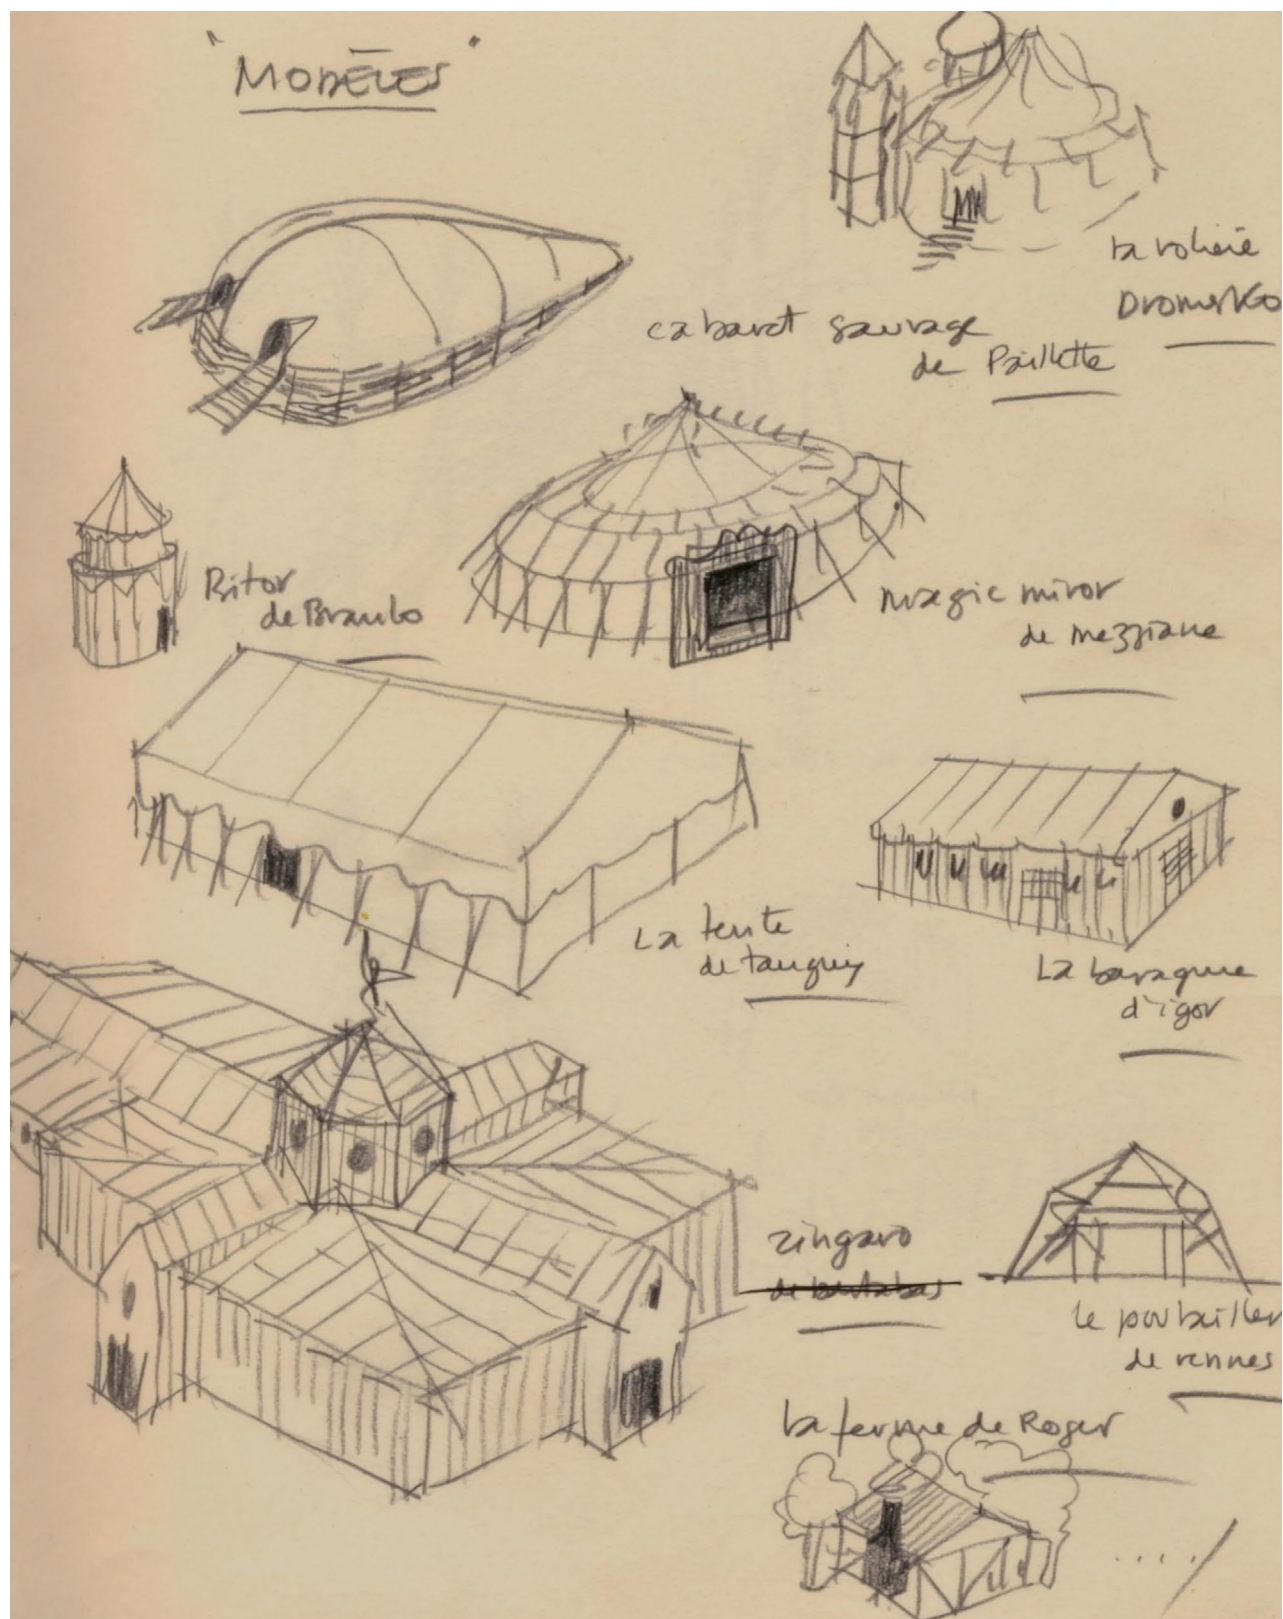 "MODÈLES"
la volière
Dromesko
cabaret sauvage
de Paillette
Bitor
de Braulo
magic miror
de mezziane
La tente
de tanguy
La baraque
d'igor
zingaro
de bartabas
le poulailler
de rennes
la ferme de Roger
..../